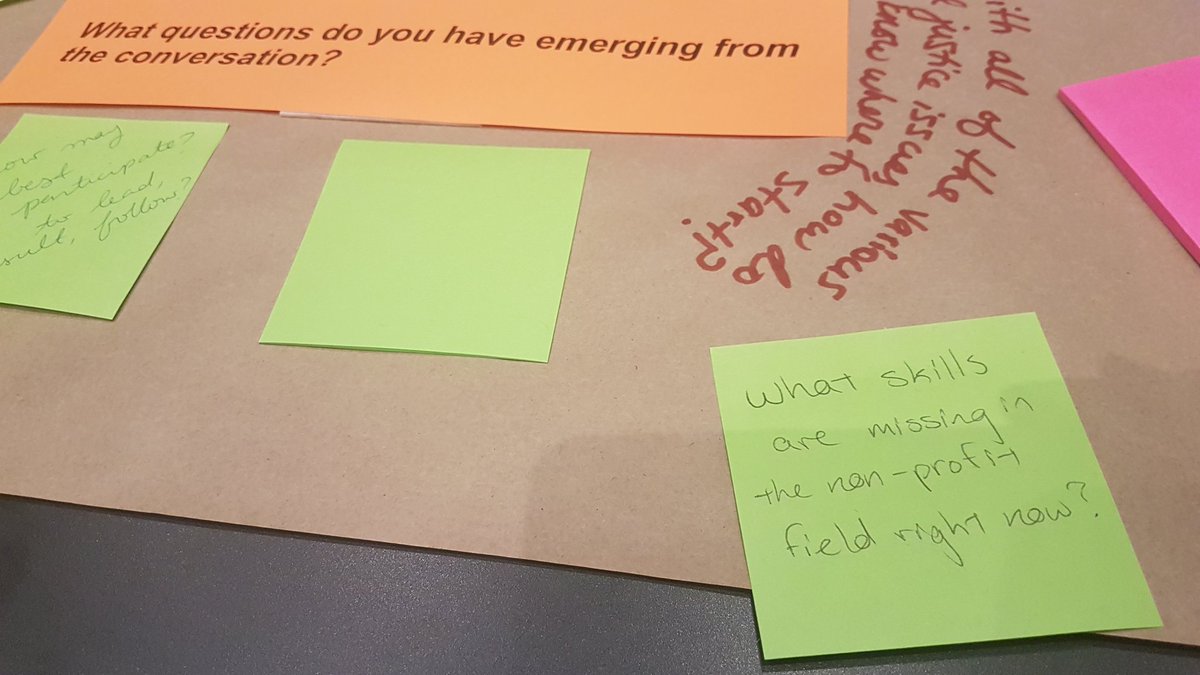 What questions do you have emerging from
the conversation?
may
best
participate?
to lead,
follow?
all of the various
justice issues how do
know where to start?
What skills
are missing in
the non-profit
field right now?